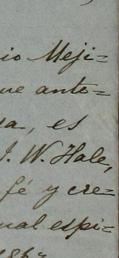 io Meji=
ue ante=
sa, es
J. W. Hale,
fé y cre=
ual espi=
186